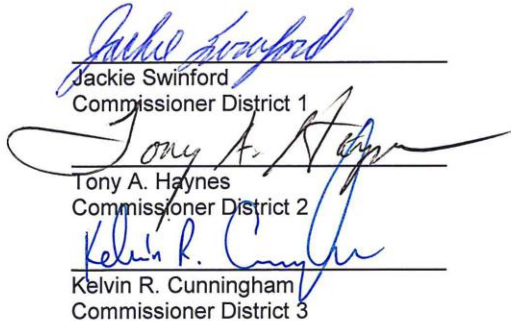 Jackie Swinford
Jackie Swinford
Commissioner District 1
Tony A. Haynes
Tony A. Haynes
Commissioner District 2
Kelvin R. Cunningham
Kelvin R. Cunningham
Commissioner District 3